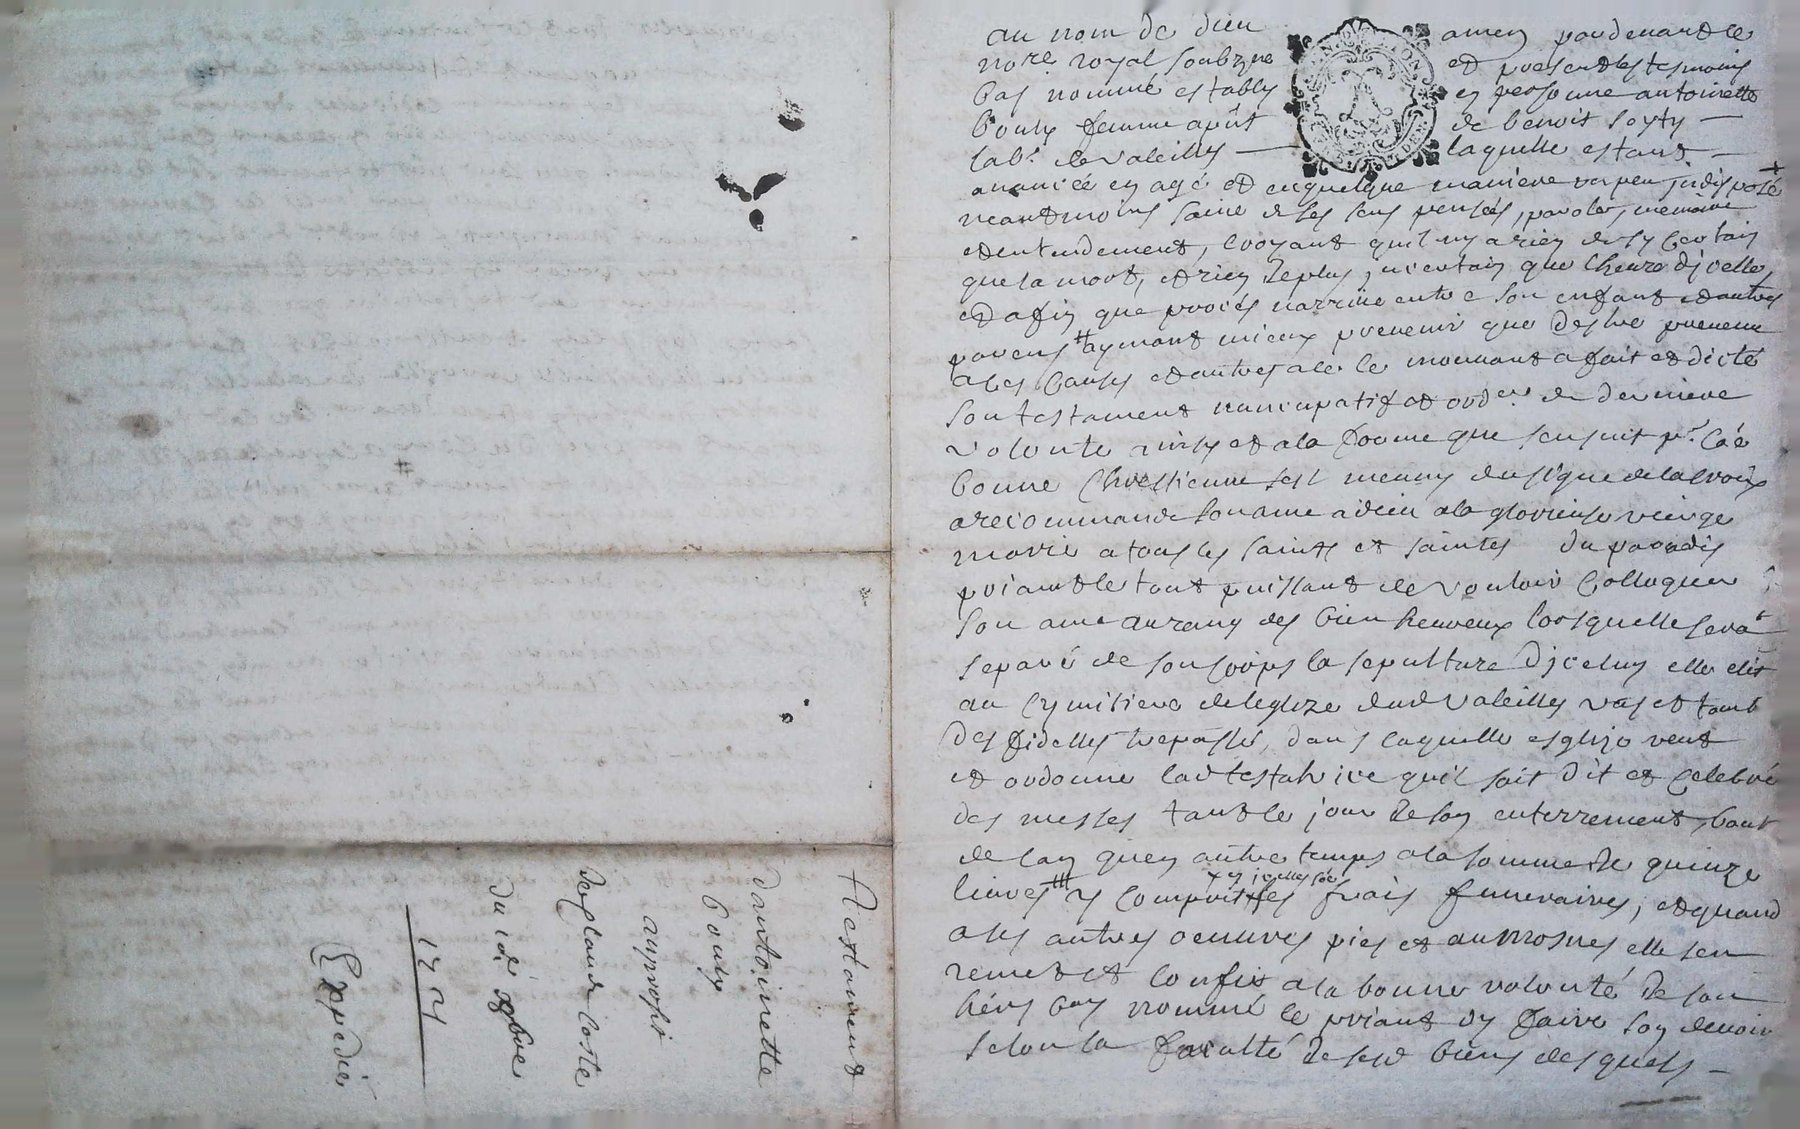 au nom de dieu amen pardevant le
no.re royal soubzne et presend les tesmoins
bas nommé estably en personne antoinette
bouly femme apnt de benoit soyty
lab.r de valeilly laquelle estand
avancéé en agé et en quelque maniere un peu indisposé
neantmoins saine de ses sens pensees, parole, memoire
et entendement, croyant quil ny a rien de sy certain
que la mort, et rien de plus incertain que lheure dicelle,
et afin que procés narrive entre son enfant et autres
parens aymant mieux prevenir que destre prevenue
a ces causes et autres a ce le mouvant a fait et dicté
son testament nuncupatif et ord.re de derniere
volonte ainsy et a la forme que sensuit p.r coe
bonne Chrestienne sest meuny du signe de la croix
a recommandé son ame a dieu a la glorieuse vierge
marie a tous les saints et saintes du paradis
priant le tout puissant de vouloir Colloquer
son ame au rang des bien heureux lorsquelle sera
separé de son corps la sepulture diceluy elle elit
au Cymitiere de leglize dud valeilly vas et tomb
des fidelles trepassé, dans laquelle esglize veut
et ordonne lad testatrice quil soit dit et Celebré
des messes tant le jour de son enterrement, bout
de lan quen autre temps a la somme de quinze
livres y compris les frais funeraires, et quand
a ses autres oeuvres pies et aumosnes elle sen
remet et confie a la bonne volonté de son
hery bas nommé le priant dy faire son devoir
selon la faculté de sesd biens desquels
Testament
dantoinette
bouly
auprofit
de claude coste
du 10.e 9bre
Expedié